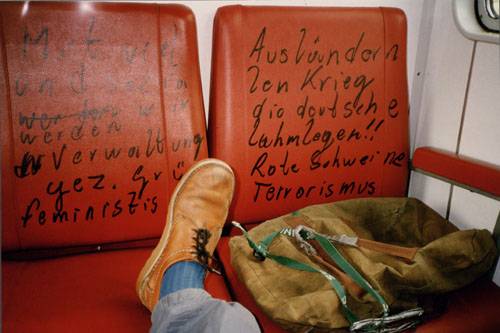 Mit
und
werden wir
werden
Verwaltung
gez. Grü
feministis
Ausländern
len Krieg
die deutsche
lahmlegen!!
Rote Schweine
Terrorismus